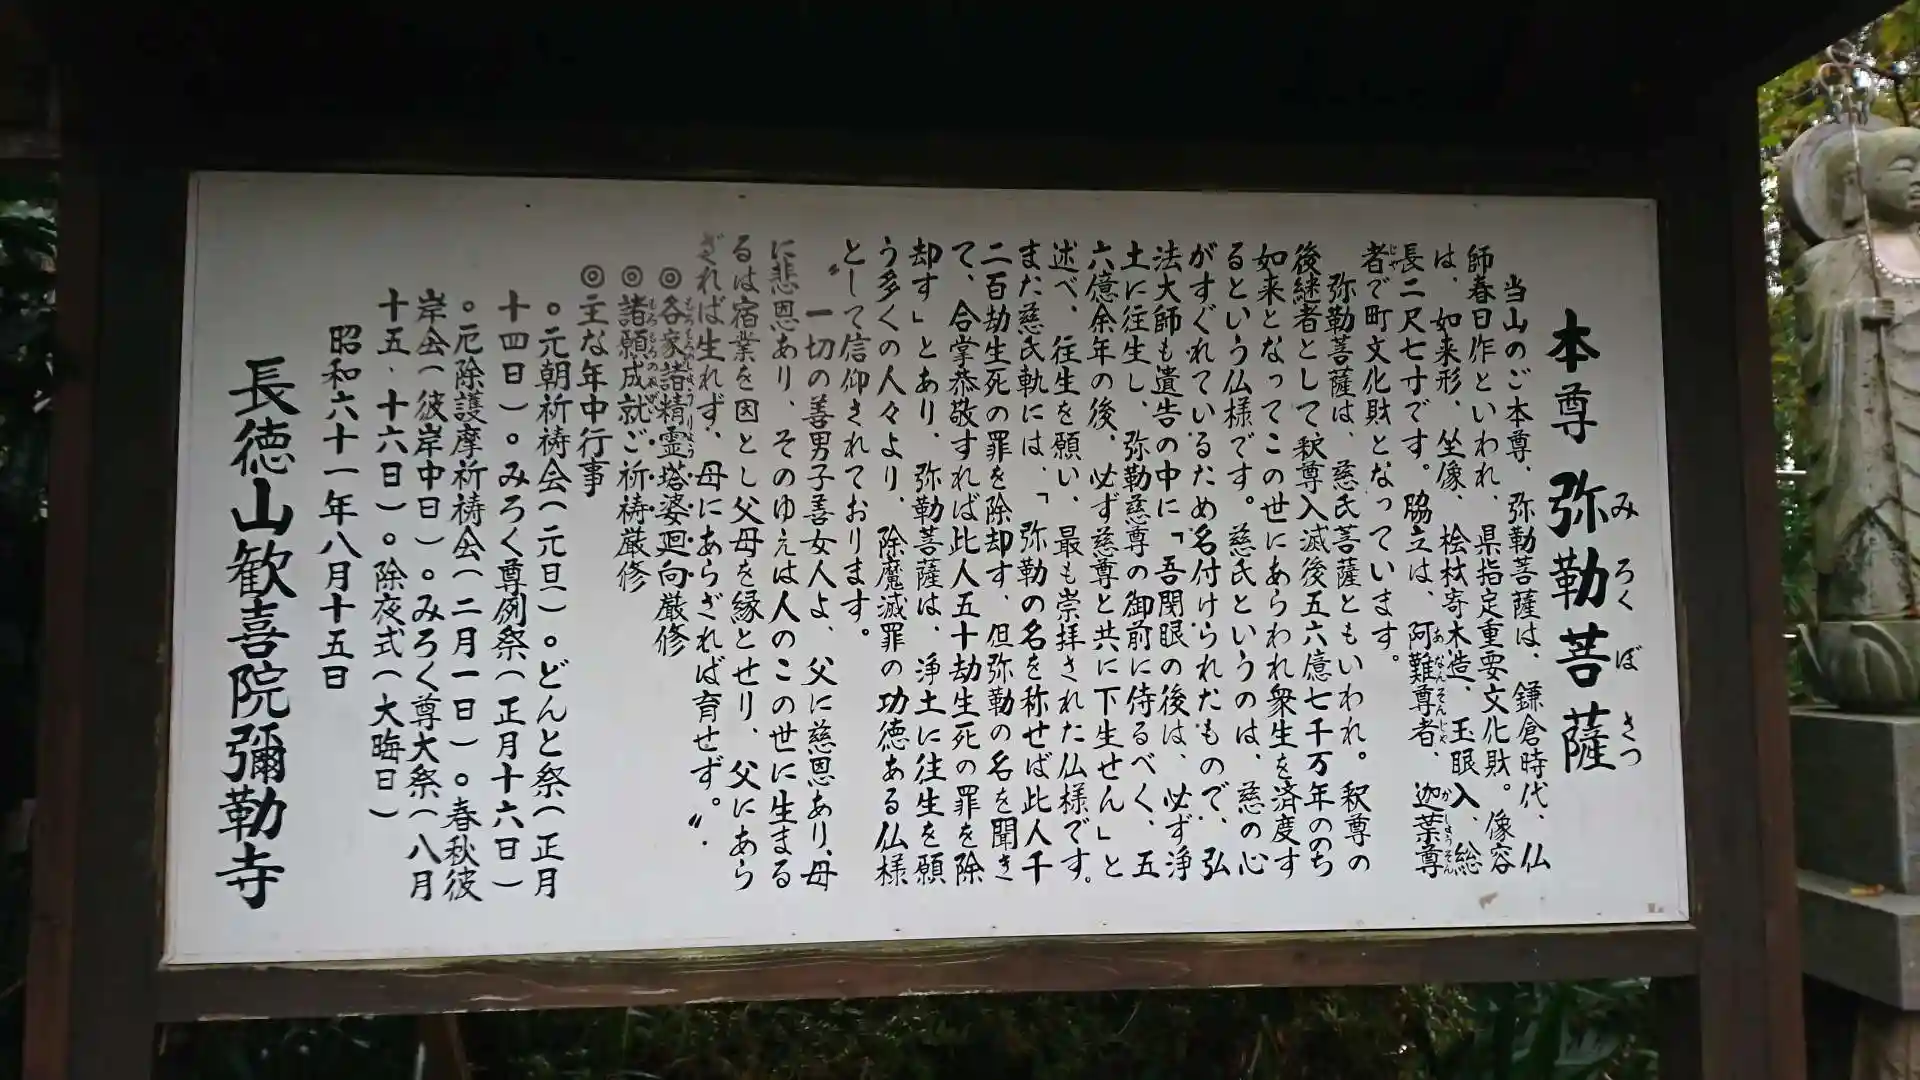 本尊 弥勒菩薩
みろくぼさつ
当山のご本尊、弥勒菩薩は、鎌倉時代、仏
師春日作といわれ、県指定重要文化財。像容
は、如来形、坐像、桧材寄木造、玉眼入、総
長二尺七寸です。脇立は、阿難尊者、迦葉尊
あなんそんじゃ かしょうそん
者で町文化財となっています。
じゃ
弥勒菩薩は、慈氏菩薩ともいわれ。釈尊の
後継者として、釈尊入滅後五六億七千万年ののち
如来となってこの世にあらわれ衆生を済度す
るという仏様です。慈氏というのは、慈の心
がすぐれているため名付けられたもので、弘
法大師も遺告の中に「吾閉眼の後は、必ず浄
土に往生し、弥勒慈尊の御前に侍るべく、五
六億余年の後、必ず慈尊と共に下生せん」と
述べ、往生を願い、最も崇拝された仏様です。
また慈氏軌には、「弥勒の名を称せば此人千
二百劫生死の罪を除却す、但弥勒の名を聞き
て、合掌恭敬すれば此人五十劫生死の罪を除
却す」とあり、弥勒菩薩は、浄土に往生を願
う多くの人々より、除魔滅罪の功徳ある仏様
として信仰されております。
〝一切の善男子善女人よ、父に慈恩あり、母
に悲恩あり、そのゆえは人のこの世に生まる
るは宿業を因とし父母を縁とせり、父にあら
ざれば生れず、母にあらざれば育せず。〟
◎各家諸精霊塔婆廻向厳修
◎諸願成就ご祈祷厳修
◎主な年中行事
○元朝祈祷会(元旦)○どんと祭(正月
十四日)○みろく尊例祭(正月十六日)
○厄除護摩祈祷会(二月一日)○春秋彼
岸会(彼岸中日)○みろく尊大祭(八月
十五・十六日)○除夜式(大晦日)
昭和六十一年八月十五日
長徳山歓喜院彌勒寺